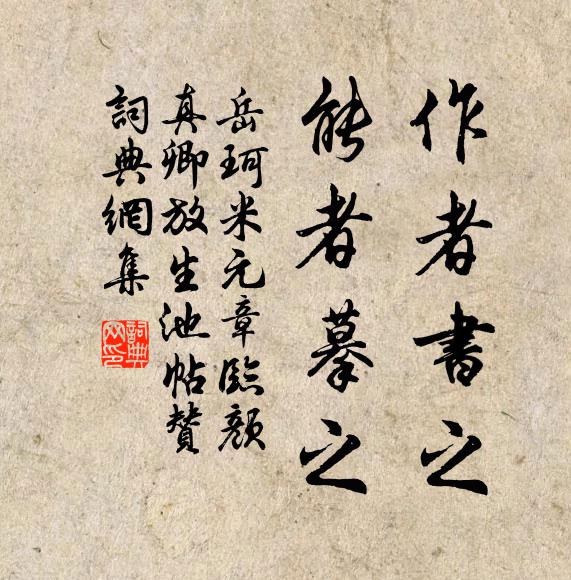 作者書之
能者摹之
岳珂米元章臨顏
真卿放生池帖贊
詞典網集
詞典网印